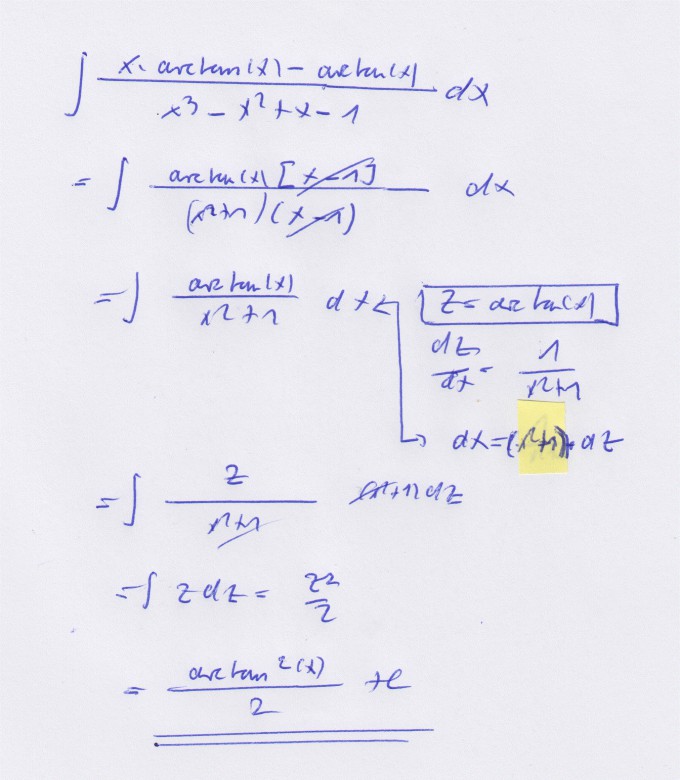 ∫ (x · arctan(x) − arctan(x)) / (x³ − x² + x − 1) dx
= ∫ (arctan(x) [x − 1]) / ((x²+1)(x − 1)) dx
= ∫ arctan(x) / (x²+1) dx
z = arctan(x)
dz/dx = 1/(x²+1)
dx = (x²+1) · dz
= ∫ z / (x²+1) (x²+1) dz
= ∫ z dz = z²/2
= arctan²(x) / 2 + C